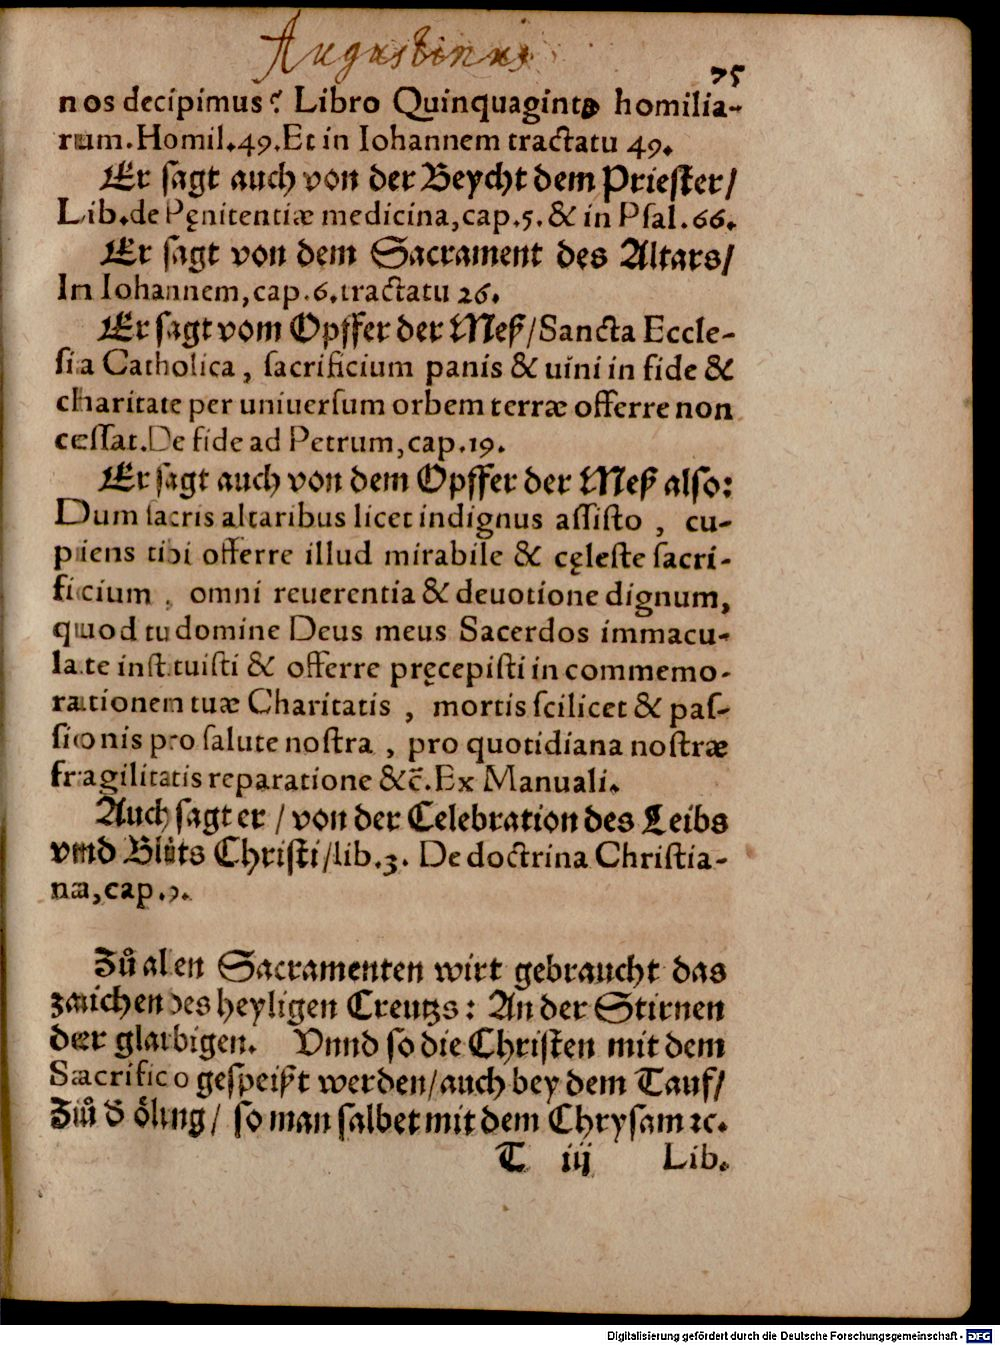 Augustinus
75
nos decipimus? Libro Quinquaginta homilia-
rum. Homil. 49. Et in Iohannem tractatu 49.
Er sagt auch von der Beycht dem Priester/
Lib. de Pęnitentiæ medicina, cap. 5. & in Psal. 66.
Er sagt von dem Sacrament des Altars/
In Iohannem, cap. 6. tractatu 26.
Er sagt vom Opffer der Meß/ Sancta Eccle-
sia Catholica, sacrificium panis & uini in fide &
charitate per uniuersum orbem terræ offerre non
cessat. De fide ad Petrum, cap. 19.
Er sagt auch von dem Opffer der Meß also:
Dum sacris altaribus licet indignus assisto, cu-
piens tibi offerre illud mirabile & cęleste sacri-
ficium, omni reuerentia & deuotione dignum,
quod tu domine Deus meus Sacerdos immacu-
late instituisti & offerre pręcepisti in commemo-
rationem tuæ Charitatis, mortis scilicet & pas-
sionis pro salute nostra, pro quotidiana nostræ
fragilitatis reparatione &c̄. Ex Manuali.
Auch sagt er/ von der Celebration des Leibs
vnd Blůts Christi/ lib. 3. De doctrina Christia-
na, cap. 9.
Zů allen Sacramenten wirt gebraucht das
zaichen des heyligen Creutzs: An der Stirnen
der glaubigen. Vnnd so die Christen mit dem
Sacrifico gespeißt werden/ auch bey dem Tauf/
Zů d̄ ölung/ so man salbet mit dem Chrysam ꝛc.
T iij Lib.
Digitalisierung gefördert durch die Deutsche Forschungsgemeinschaft - DFG